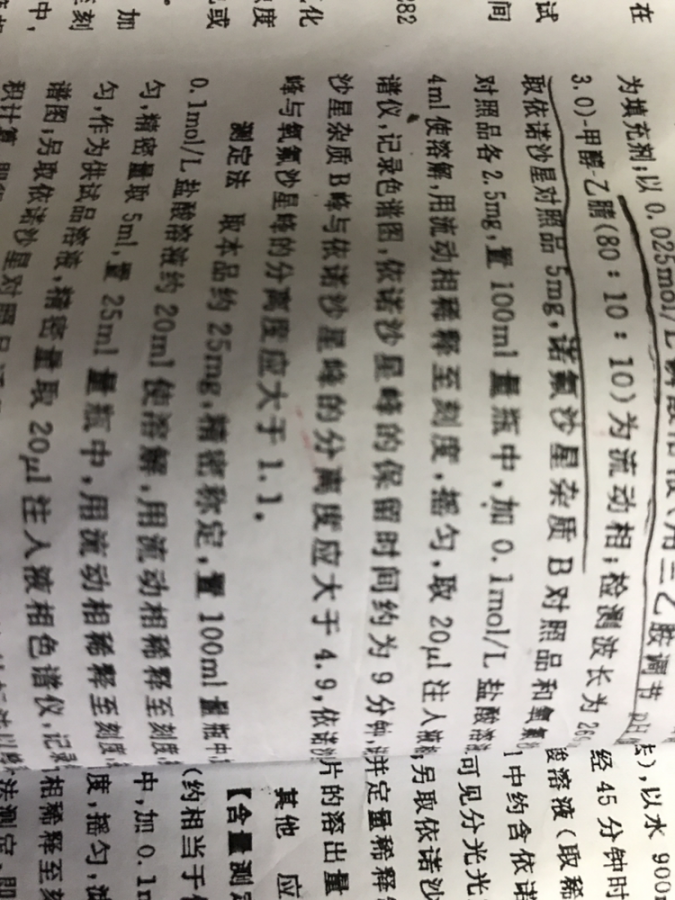 为填充剂;以 0.025mol/L 磷酸溶液(用三乙胺调节 pH
3.0)-甲醇-乙腈(80∶10∶10)为流动相;检测波长为
取依诺沙星对照品 5mg,诺氟沙星杂质 B 对照品和氧氟沙
对照品各 2.5mg,置 100ml 量瓶中,加 0.1mol/L 盐酸溶液
4ml 使溶解,用流动相稀释至刻度,摇匀,取 20μl 注入液相
谱仪,记录色谱图,依诺沙星峰的保留时间约为 9 分钟,
沙星杂质 B 峰与依诺沙星峰的分离度应大于 4.9,依诺沙
峰与氧氟沙星峰的分离度应大于 1.1。
测定法 取本品约 25mg,精密称定,置 100ml 量瓶中,
0.1mol/L 盐酸溶液约 20ml 使溶解,用流动相稀释至刻度,
匀,精密量取 5ml,置 25ml 量瓶中,用流动相稀释至刻度,
匀,作为供试品溶液,精密量取 20μl 注入液相色谱仪,记录
谱图;另取依诺沙星对照品
积计算
在
试
间
282
化
度
或
加
至刻
中,
),以水 900m
经 45 分钟时
酸溶液(取稀
中约含依诺
可见分光光
;另取依诺沙
并定量稀释
片的溶出量
其他 应
【含量测定
(约相当于依
中,加 0.1m
度,摇匀,滤
相稀释至刻
法测定,即